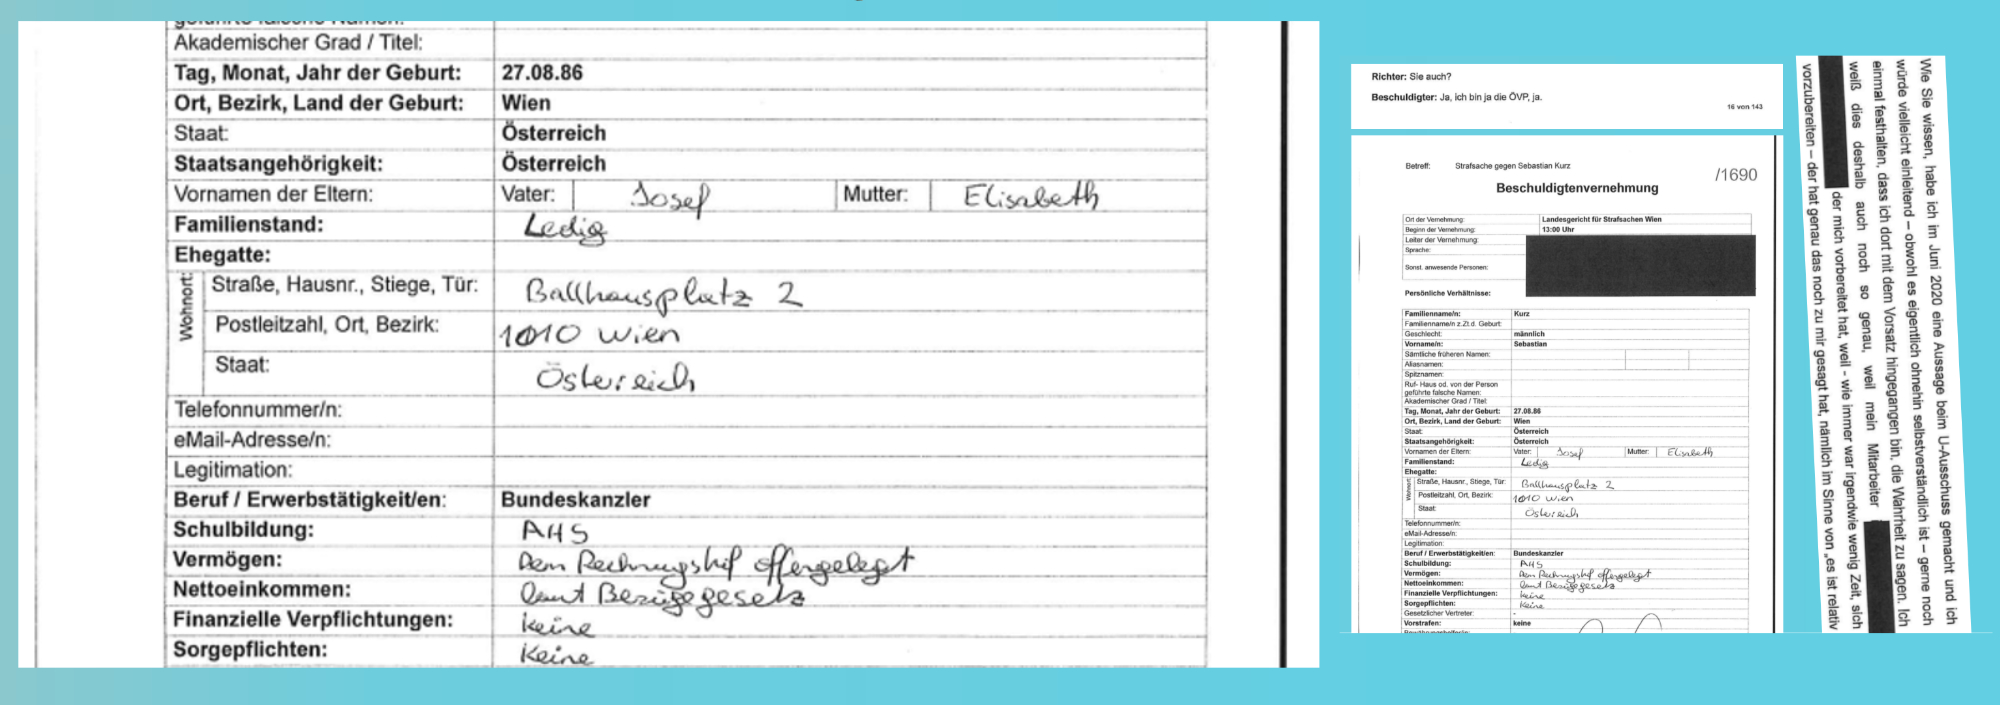 geführte falsche Namen:
Akademischer Grad / Titel:
Tag, Monat, Jahr der Geburt: 27.08.86
Ort, Bezirk, Land der Geburt: Wien
Staat: Österreich
Staatsangehörigkeit: Österreich
Vornamen der Eltern: Vater: Josef Mutter: Elisabeth
Familienstand: Ledig
Ehegatte:
Wohnort:
Straße, Hausnr., Stiege, Tür: Ballhausplatz 2
Postleitzahl, Ort, Bezirk: 1010 Wien
Staat: Östereich
Telefonnummer/n:
eMail-Adresse/n:
Legitimation:
Beruf / Erwerbstätigkeit/en: Bundeskanzler
Schulbildung: AHS
Vermögen: Dem Rechnungshof offengelegt
Nettoeinkommen: laut Bezügegesetz
Finanzielle Verpflichtungen: keine
Sorgepflichten: Keine
Richter: Sie auch?
Beschuldigter: Ja, ich bin ja die ÖVP, ja.
16 von 143
Betreff: Strafsache gegen Sebastian Kurz
/1690
Beschuldigtenvernehmung
Ort der Vernehmung: Landesgericht für Strafsachen Wien
Beginn der Vernehmung: 13:00 Uhr
Leiter der Vernehmung:
Sprache:
Sonst. anwesende Personen:
Persönliche Verhältnisse:
Familienname/n: Kurz
Familienname/n z.Zt.d. Geburt:
Geschlecht: männlich
Vorname/n: Sebastian
Sämtliche früheren Namen:
Aliasnamen:
Spitznamen:
Ruf- Haus od. von der Person
geführte falsche Namen:
Akademischer Grad / Titel:
Tag, Monat, Jahr der Geburt: 27.08.86
Ort, Bezirk, Land der Geburt: Wien
Staat: Österreich
Staatsangehörigkeit: Österreich
Vornamen der Eltern: Vater: Josef Mutter: Elisabeth
Familienstand: Ledig
Ehegatte:
Wohnort:
Straße, Hausnr., Stiege, Tür: Ballhausplatz 2
Postleitzahl, Ort, Bezirk: 1010 Wien
Staat: Östereich
Telefonnummer/n:
eMail-Adresse/n:
Legitimation:
Beruf / Erwerbstätigkeit/en: Bundeskanzler
Schulbildung: AHS
Vermögen: Dem Rechnungshof offengelegt
Nettoeinkommen: laut Bezügegesetz
Finanzielle Verpflichtungen: keine
Sorgepflichten: Keine
Gesetzlicher Vertreter: -
Vorstrafen: keine
Wie Sie wissen, habe ich im Juni 2020 eine Aussage beim U-Ausschuss gemacht und ich
würde vielleicht einleitend – obwohl es eigentlich ohnehin selbstverständlich ist – gerne noch
einmal festhalten, dass ich dort mit dem Vorsatz hingegangen bin, die Wahrheit zu sagen. Ich
weiß dies deshalb auch noch so genau, weil mein Mitarbeiter
der mich vorbereitet hat, weil - wie immer war irgendwie wenig Zeit, sich
vorzubereiten – der hat genau das noch zu mir gesagt hat, nämlich im Sinne von „es ist relativ